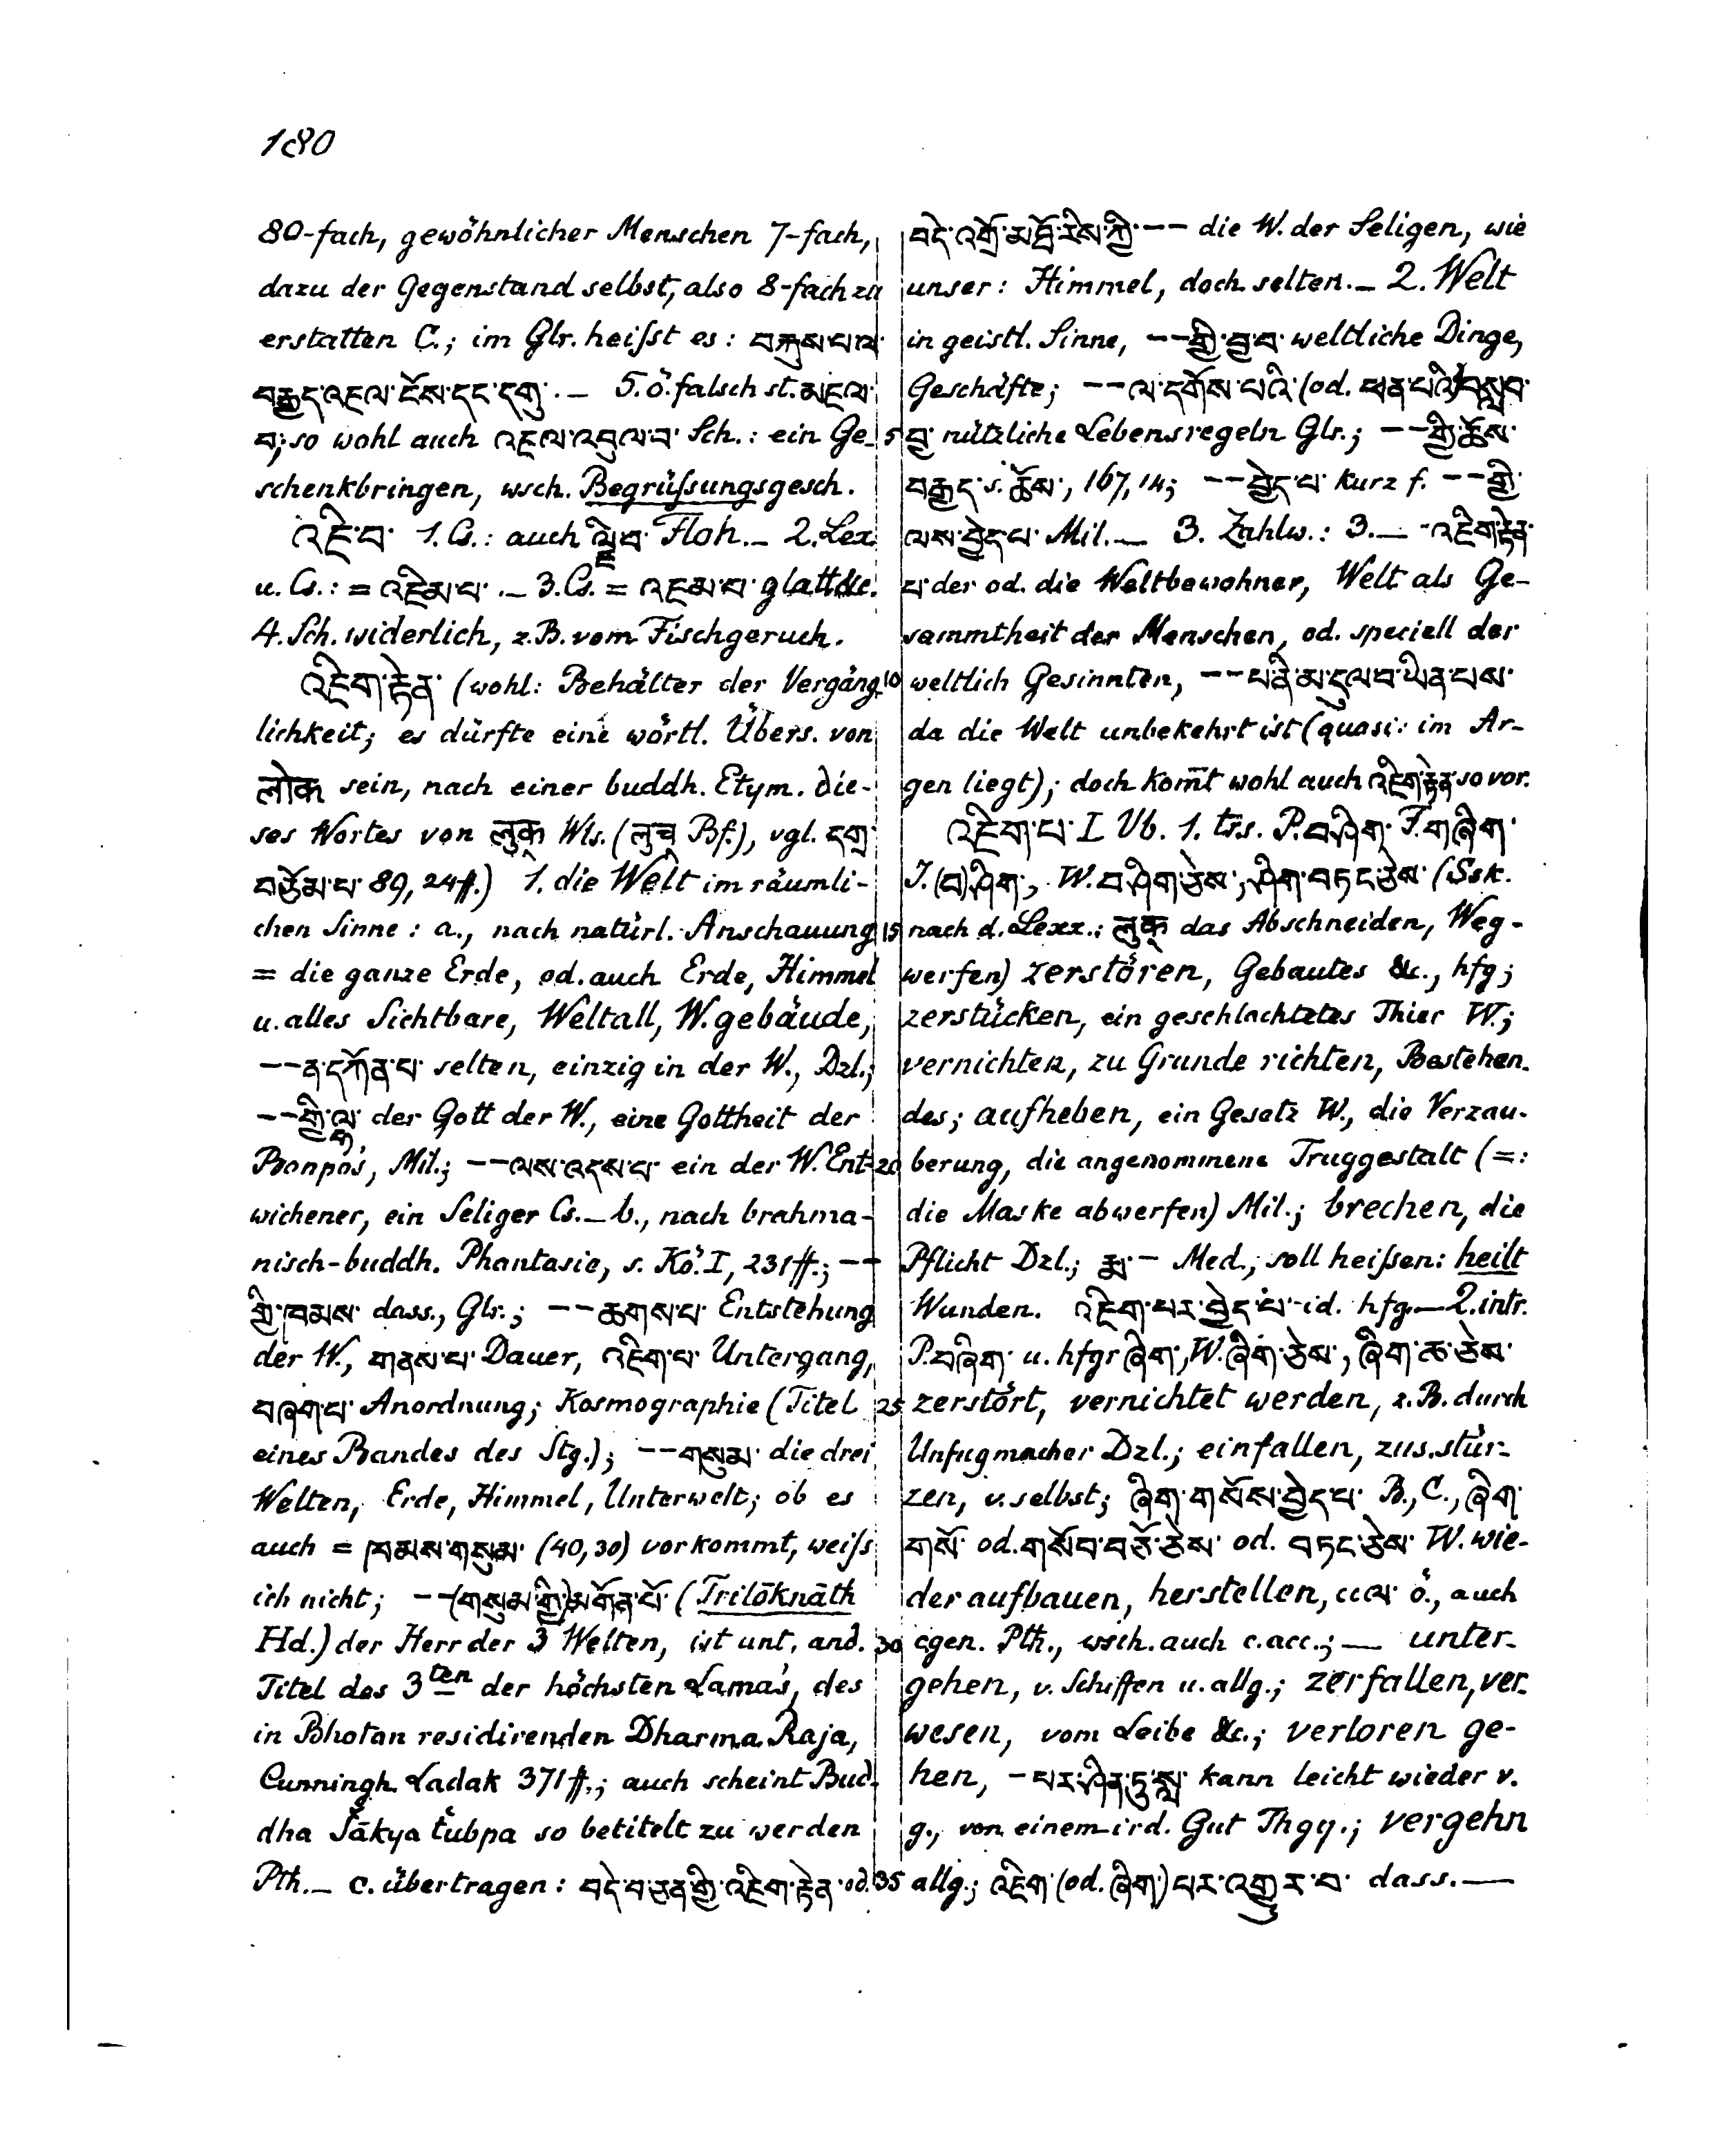 180
80-fach, gewöhnlicher Menschen 7-fach,
dazu der Gegenstand selbst, also 8-fach zu
erstatten C.; im Glr. heiſst es: བརྐུས་པ་ལ་
བརྒྱད་འཇལ་ངོས་དང་དགུ་ ._ 5. ö. falsch st. མཇལ་
བ; so wohl auch འཇལ་འབུལ་བ་ Sch.: ein Ge-
schenkbringen, wsch. Begrüſsungsgesch.
འཇི་བ་ 1. Cs.: auch ལྗི་བ་ Floh._ 2. Lex.
u. Cs.: = འཇིམ་པ་ ._ 3. Cs. = འཇམ་པ་ glatt &c.
4. Sch. widerlich, z.B. vom Fischgeruch.
འཇིག་རྟེན་ (wohl: Behälter der Vergäng-
lichkeit; es dürfte eine wörtl. Übers. von
लोक sein, nach einer buddh. Etym. die-
ses Wortes von लुक् Wls. (लुच् Bf.), vgl. དགྲ་
བཅོམ་པ་ 89, 24ff.) 1. die Welt im räumli-
chen Sinne: a., nach natürl. Anschauung
= die ganze Erde, od. auch Erde, Himmel
u. alles Sichtbare, Weltall, W.gebäude,
--ན་དཀོན་པ་ selten, einzig in der W., Dzl.;
--གྱི་ལྷ་ der Gott der W., eine Gottheit der
Bonpo's, Mil.; --ལས་འདས་པ་ ein der W. Ent-
wichener, ein Seliger Cs._ b., nach brahma-
nisch-buddh. Phantasie, s. Kö. I, 231ff.; --
གྱི་ཁམས་ dass., Glr.; --ཆགས་པ་ Entstehung
der W., གནས་པ་ Dauer, འཇིག་པ་ Untergang,
བཞག་པ་ Anordnung; Kosmographie (Titel
eines Bandes des Stg.); --གསུམ་ die drei
Welten, Erde, Himmel, Unterwelt; ob es
auch = ཁམས་གསུམ་ (40,30) vorkommt, weiſs
ich nicht; --(གསུམ་གྱི་)མགོན་པོ་ (Trilōknāth
Hd.) der Herr der 3 Welten, ist unt. and.
Titel des 3ten der höchsten Lama's, des
in Bhotan residirenden Dharma Raja,
Cunningh. Ladak 371ff.; auch scheint Bud-
dha Šākya tubpa so betitelt zu werden
Pth._ c. übertragen: བདེ་བ་ཅན་གྱི་འཇིག་རྟེན་ od.
བདེ་འགྲོ་མཐོ་རིས་ཀྱི་ -- die W. der Seligen, wie
unser: Himmel, doch selten._ 2. Welt
in geistl. Sinne, --གྱི་བྱ་བ་ weltliche Dinge,
Geschäfte; --ལ་དགོས་པའི་ (od. ཕན་པའི་) བསླབ་
5 བྱ་ nützliche Lebensregeln Glr.; --གྱི་ཆོས་
བརྒྱད་ s. ཆོས་, 167,14; --བྱེད་པ་ kurz f. --གྱི་
ལས་བྱེད་པ་ Mil._ 3. Zahlw.: 3._ འཇིག་རྟེན་
པ་ der od. die Weltbewohner, Welt als Ge-
sammtheit der Menschen, od. speciell der
10 weltlich Gesinnten, --པ་ནི་མ་དུལ་བ་ཡིན་པས་
da die Welt unbekehrt ist (quasi: im Ar-
gen liegt); doch kom̅t wohl auch འཇིག་རྟེན་ so vor.
འཇིག་པ་ I Vb. 1. trs. P. བཤིག་ F. གཞིག་
I. (བ)ཤིག་, W. བཤིག་ཅེས་, ཤིག་བཏང་ཅེས་ (Ssk.
15 nach d. Lexx.: लुक् das Abschneiden, Weg-
werfen) zerstören, Gebautes &c., hfg;
zerstücken, ein geschlachtetes Thier W.;
vernichten, zu Grunde richten, Bestehen-
des; aufheben, ein Gesetz W., die Verzau-
20 berung, die angenommene Truggestalt (=:
die Maske abwerfen) Mil.; brechen, die
Pflicht Dzl.; རྨ་ - Med., soll heiſsen: heilt
Wunden. འཇིག་པར་བྱེད་པ་ id. hfg._ 2. intr.
P. བཞིག་ u. hfgr ཞིག་, W. ཞིག་ཅེས་, ཞིག་ཆ་ཅེས་
25 zerstört, vernichtet werden, z.B. durch
Unfugmacher Dzl.; einfallen, zus.stür-
zen, v. selbst; ཞིག་གསོས་བྱེད་པ་ B., C., ཞིག་
གསོ་ od. གསོབ་བཅོ་ཅེས་ od. བཏང་ཅེས་ W. wie-
der aufbauen, herstellen, ccལ་ ö., auch
30 cgen. Pth., wsch. auch c. acc.; _ unter-
gehen, v. Schiffen u. allg.; zerfallen, ver-
wesen, vom Leibe &c.; verloren ge-
hen, -པར་ཤིན་ཏུ་སླ་ kann leicht wieder v.
g., von einem ird. Gut Thgy.; vergehn
35 allg.; འཇིག་ (od. ཞིག་) པར་འགྱུར་བ་ dass._